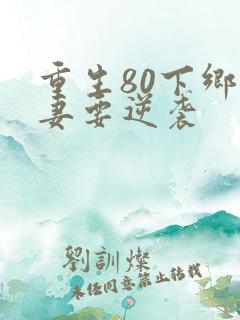 重生80下鄉
妻要逆袭
劉訓燦
未任同意禁止轉載